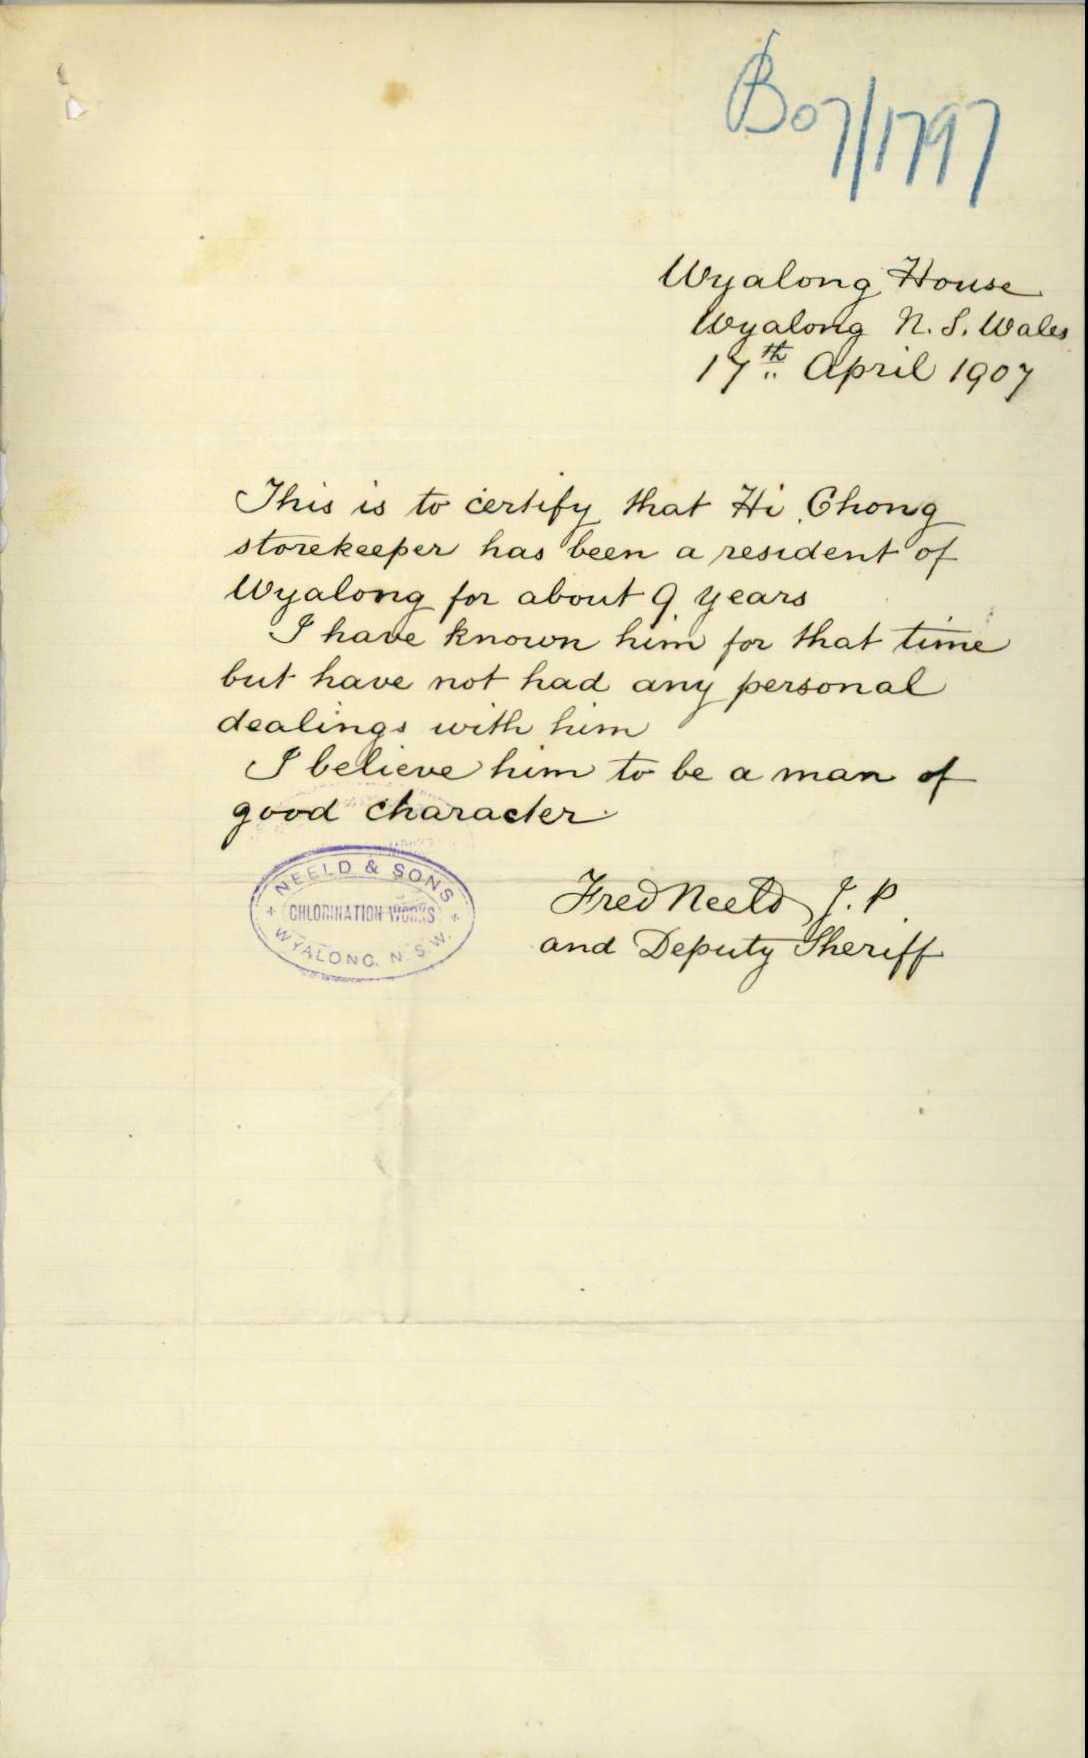 B07/1797
Wyalong House
Wyalong N. S. Wales
17th April 1907
This is to certify that Hi Chong
storekeeper has been a resident of
Wyalong for about 9 years
I have known him for that time
but have not had any personal
dealings with him
I believe him to be a man of
good character
NEELD & SONS
CHLORINATION WORKS
WYALONG, N.S.W.
Fred Neeld J. P.
and Deputy Sheriff